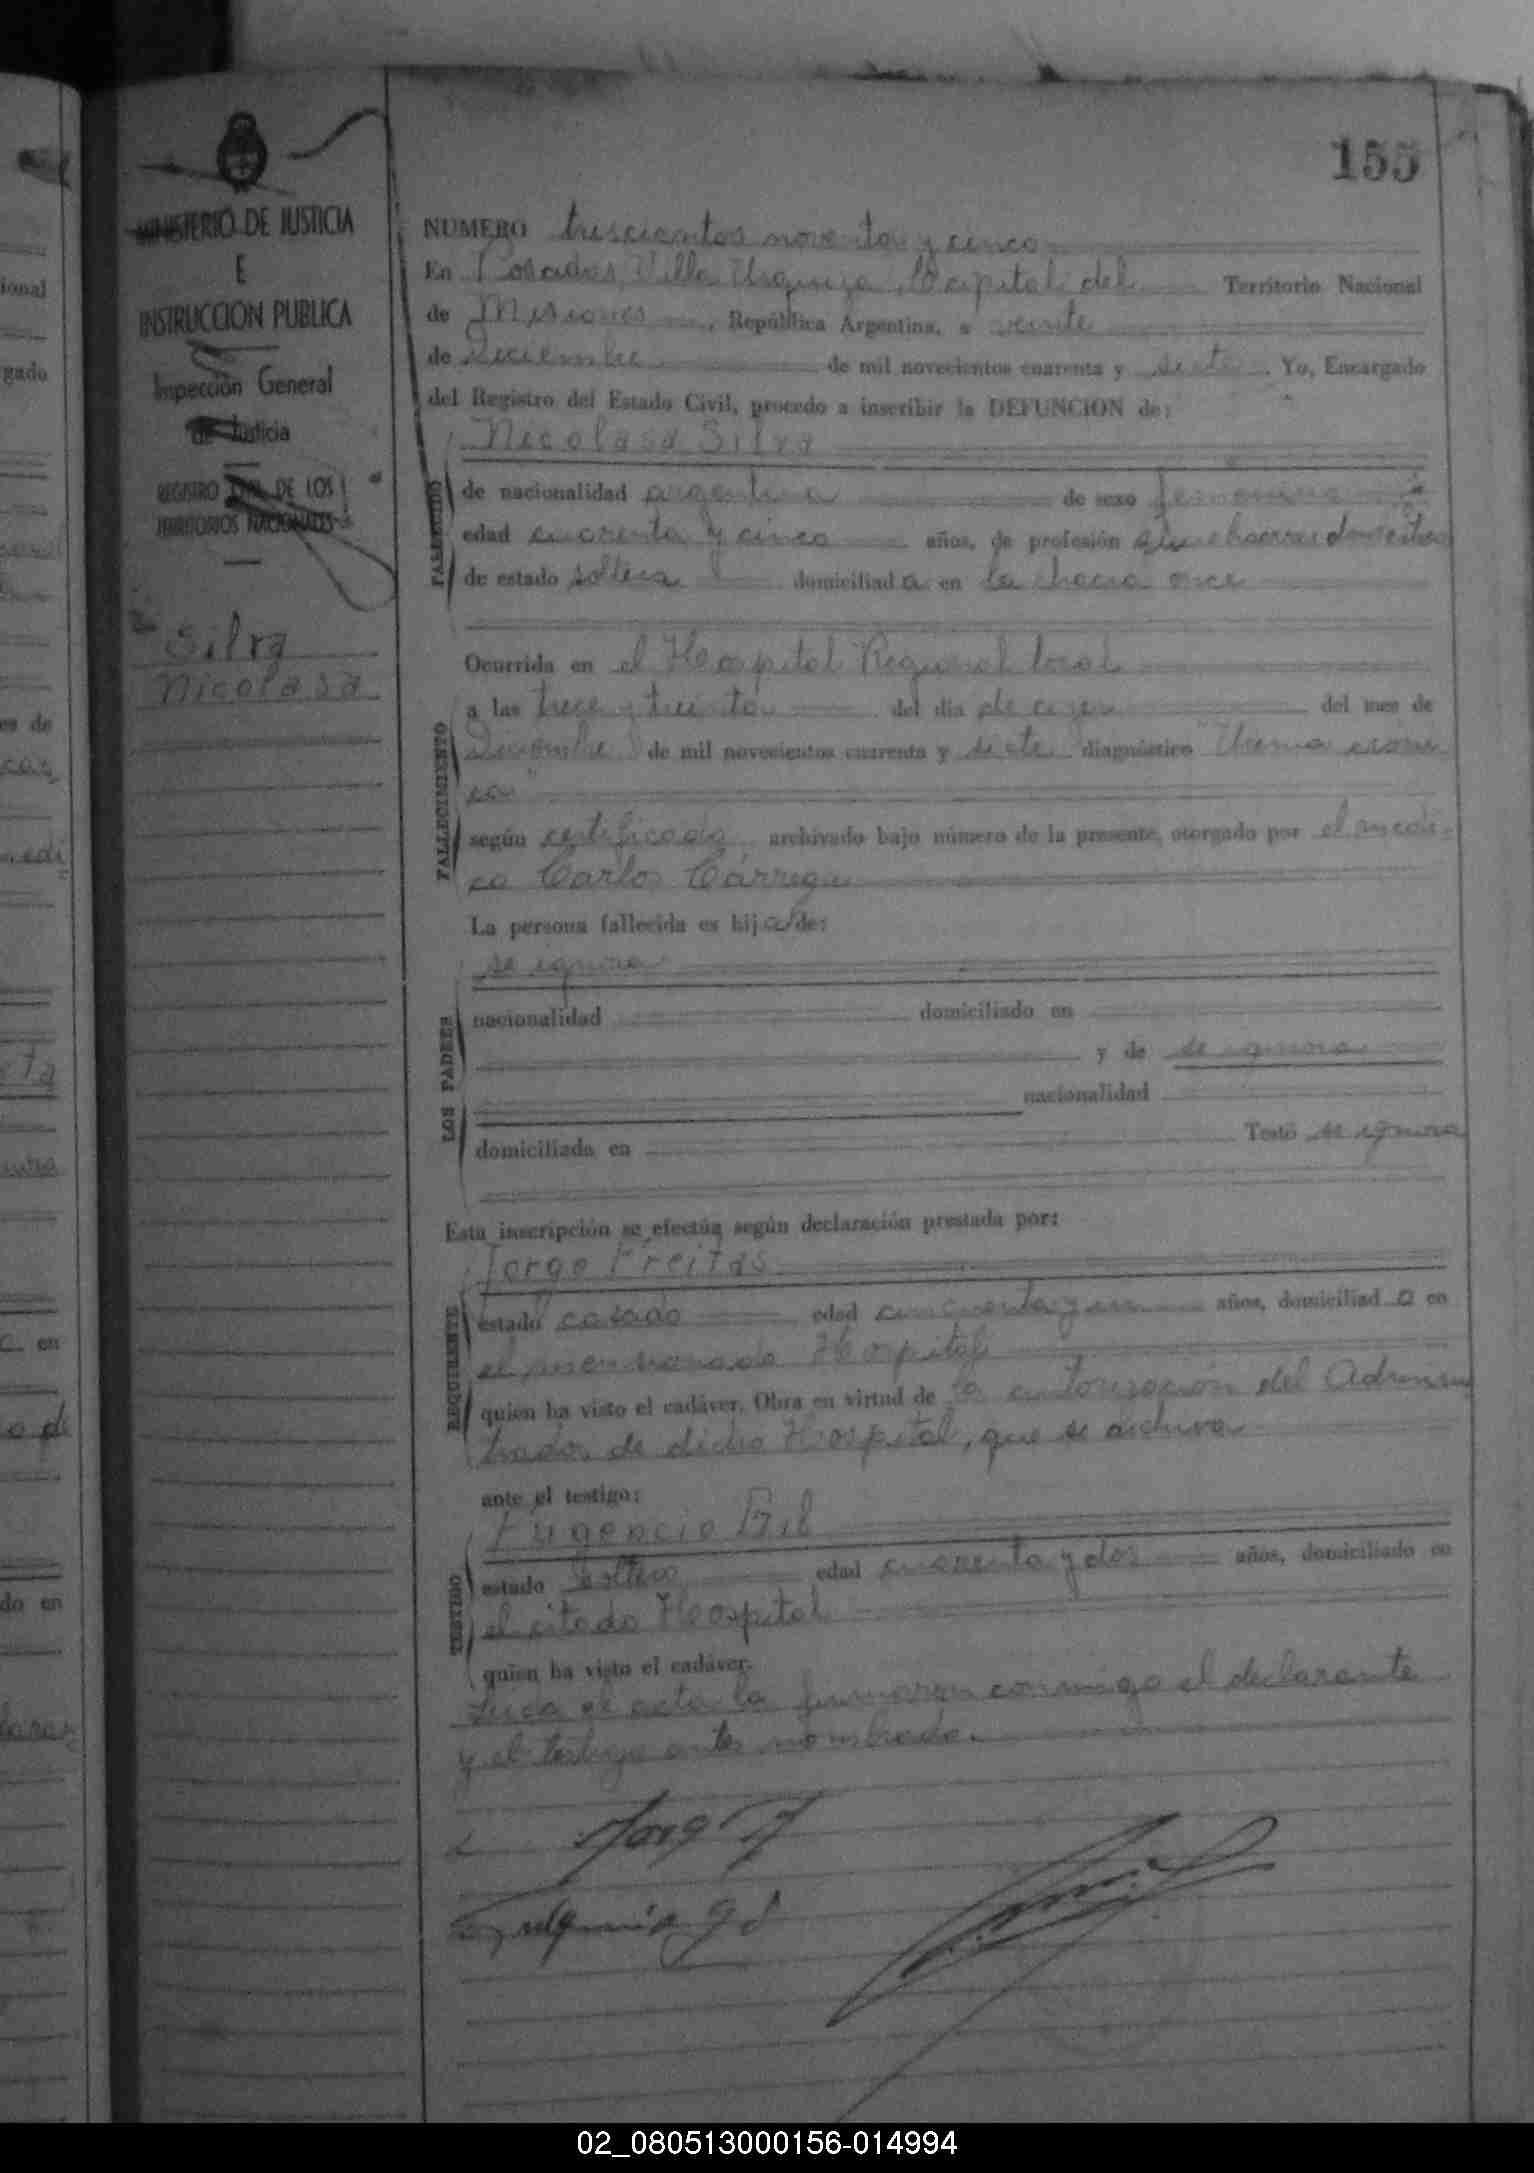 155
MINISTERIO DE JUSTICIA
E
INSTRUCCION PUBLICA
Inspección General
de Justicia
REGISTRO CIVIL DE LOS
TERRITORIOS NACIONALES
Silva
Nicolasa
NUMERO trescientos noventa y cinco
En Posadas, Villa Urquiza, Capital del Territorio Nacional
de Misiones, República Argentina, a veinte
de Diciembre de mil novecientos cuarenta y siete. Yo, Encargado
del Registro del Estado Civil, procedo a inscribir la DEFUNCION de:
Nicolasa Silva
FALLECIDO
de nacionalidad argentina de sexo femenino
edad cuarenta y cinco años, de profesión quehaceres domésticos
de estado soltera domiciliada en la chacra once
FALLECIMIENTO
Ocurrida en el Hospital Regional local
a las trece y treinta del día de ayer del mes de
Diciembre de mil novecientos cuarenta y siete diagnóstico "Uremia cróni
ca"
según certificado archivado bajo número de la presente, otorgado por el médi-
co Carlos Cárrega
La persona fallecida es hija de:
LOS PADRES
se ignora
nacionalidad domiciliado en
y de se ignora
nacionalidad
domiciliado en Testó se ignora
Esta inscripción se efectúa según declaración prestada por:
REQUIRENTE
Jorge Freitas
estado casado edad cincuenta y un años, domiciliado en
el mencionado Hospital
quien ha visto el cadáver. Obra en virtud de la autorización del Adminis
trador de dicho Hospital, que se archiva
ante el testigo:
TESTIGO
Fulgencio Gil
estado soltero edad cuarenta y dos años, domiciliado en
el citado Hospital
quien ha visto el cadáver.
Leída el acta la firmaron conmigo el declarante
y el testigo antes nombrado.
Jorge F
Fulgencio Gil
02_080513000156-014994